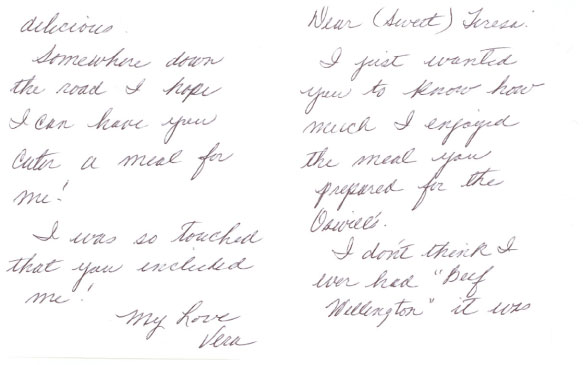 Dear (Sweet) Teresa:
I just wanted
you to know how
much I enjoyed
the meal you
prepared for the
I don't think I
ever had "Beef
Wellington" it was
delicious.
Somewhere down
the road I hope
I can have you
cater a meal for
me!
I was so touched
that you included
me!
My Love
Vera